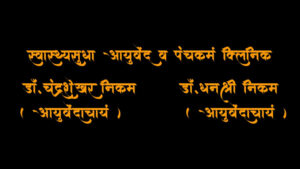 स्वास्थ्यसुधा आयुर्वेद व पंचकर्म क्लिनिक
डॉ.चंद्रशेखर निकम डॉ.धनश्री निकम
( आयुर्वेदाचार्य ) ( आयुर्वेदाचार्य )